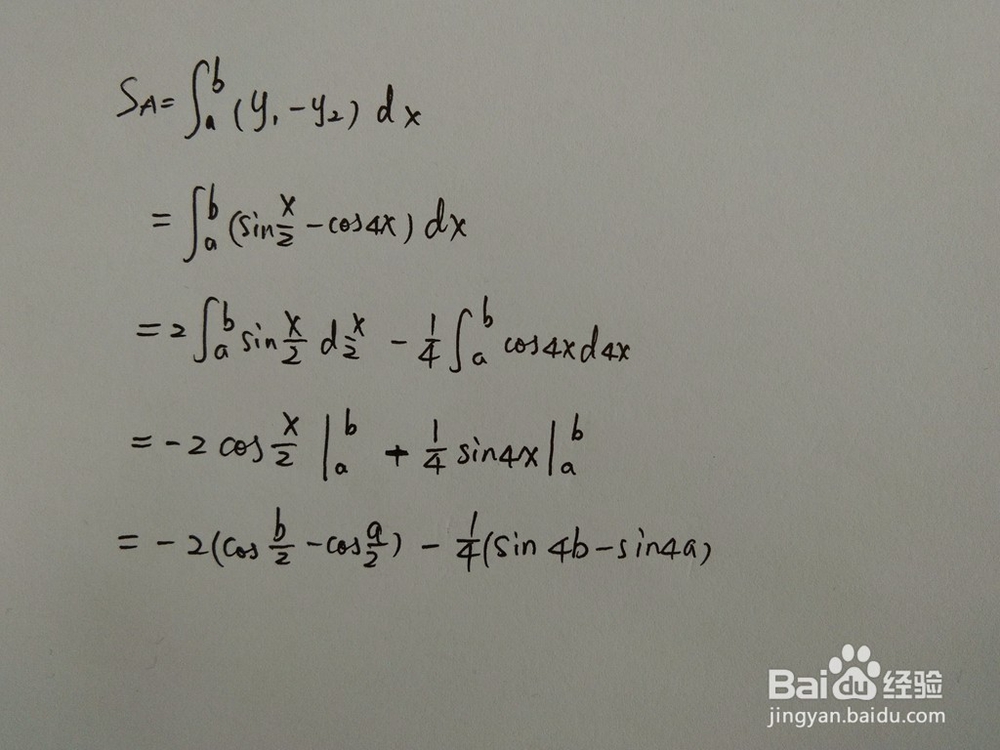 S_A = ∫_a^b (y₁ - y₂) dx
= ∫_a^b (sin x/2 - cos4x) dx
= 2 ∫_a^b sin x/2 d x/2 - 1/4 ∫_a^b cos4x d4x
= -2 cos x/2 |_a^b + 1/4 sin4x |_a^b
= -2 (cos b/2 - cos a/2) - 1/4 (sin 4b - sin4a)
Baidu 经验
jingyan.baidu.com